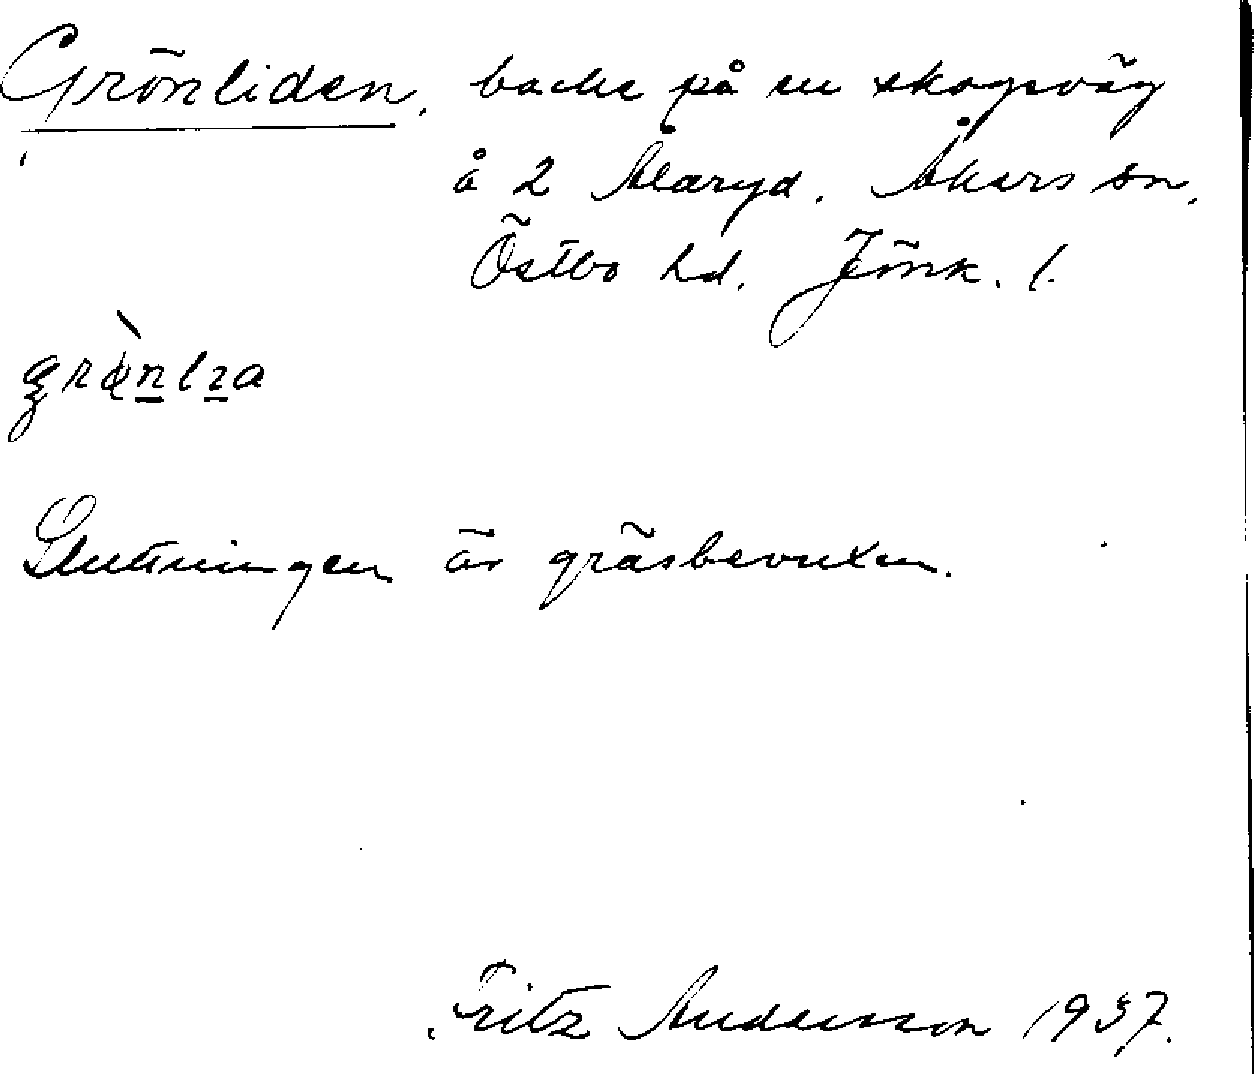 Grönliden, backe på en skogsväg
å 2 Ålaryd. Åkers sn,
Östbo hd. Jönk. l.
Sluttningen är gräsbevuxen.
Fritz Andersson 1937.